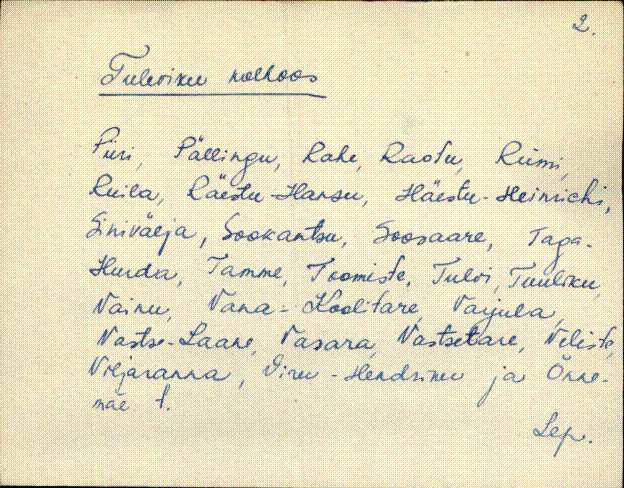 2.
Tuleviku kolhoos
Piiri, Pällingu, Rahe, Raotu, Riimi,
Ruila, Räestu-Hansu, Häestu-Heinrichi,
Sinivälja, Sookantsu, Soosaare, Taga-
Hurda, Tamme, Toomiste, Tulvi, Tuuliku,
Vainu, Vana-Koolitare, Varjula,
Vastse-Laane, Vasara, Vastsetare, Veliste,
Viljaranna, Viru-Hendriku ja Õnne-
mäe t.
Lep.